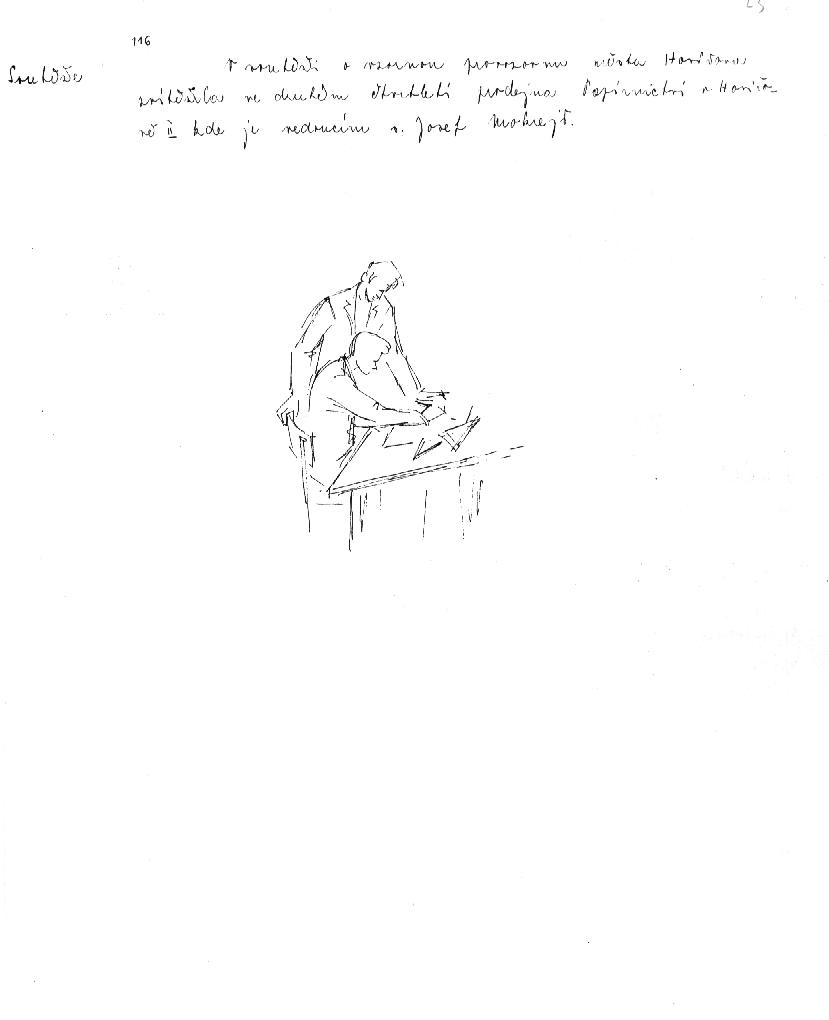 116
Soutěže
V soutěži o vzornou provozovnu města Horšova
zvítězila ve druhém čtvrtletí prodejna Papírnictví v Horšo-
vě II kde je vedoucím s. Josef Mokrejš.